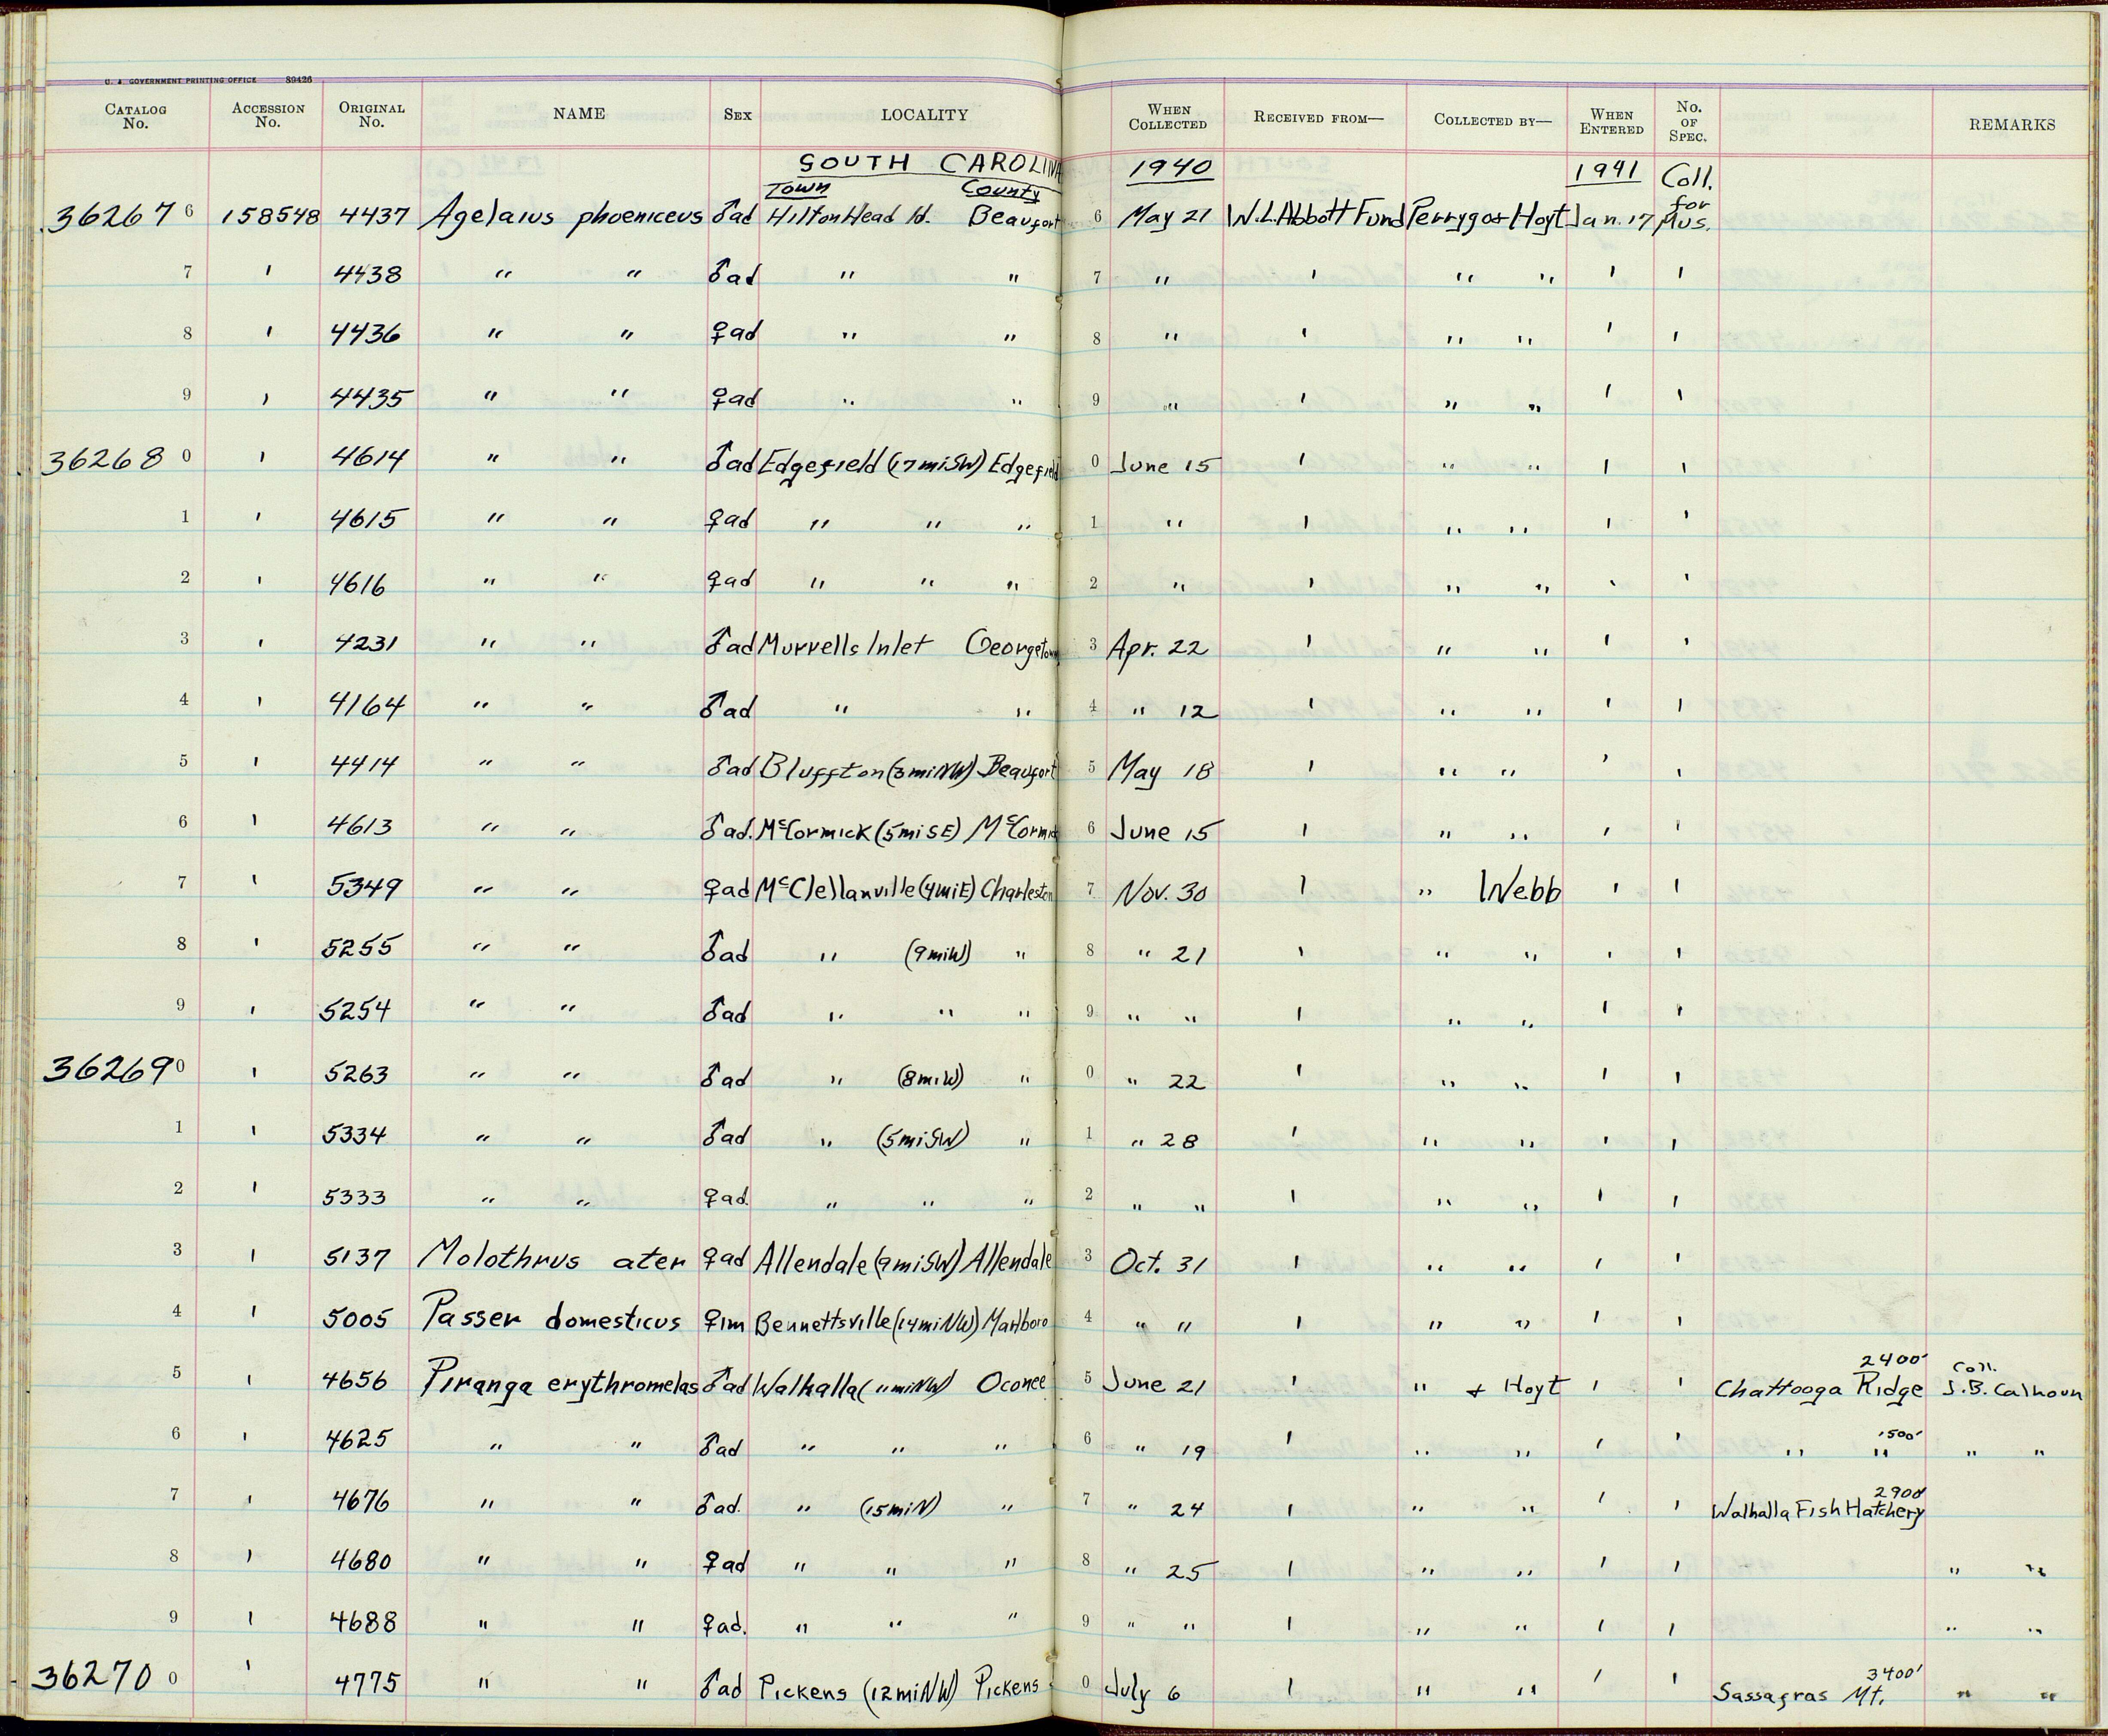 U. S. GOVERNMENT PRINTING OFFICE 89426
CATALOG No. ACCESSION No. ORIGINAL No. NAME SEX LOCALITY WHEN COLLECTED RECEIVED FROM— COLLECTED BY— WHEN ENTERED No. OF SPEC. REMARKS
SOUTH CAROLINA 1940 1941 Coll. for Mus.
Town County
36267 6 158548 4437 Agelaius phoeniceus ♂ad Hilton Head Id. Beaufort 6 May 21 W.L. Abbott Fund Perrygo & Hoyt Jan. 17
7 ' 4438 " " ♂ad " " 7 " ' " " ' '
8 ' 4436 " " ♀ad " " 8 " ' " " ' '
9 ' 4435 " " ♀ad " " 9 " ' " " ' '
36268 0 ' 4614 " " ♂ad Edgefield (17miSW) Edgefield 0 June 15 ' " " ' '
1 ' 4615 " " ♀ad " " " 1 " ' " " ' '
2 ' 4616 " " ♀ad " " " 2 " ' " " ' '
3 ' 4231 " " ♂ad Murrells Inlet Georgetown 3 Apr. 22 ' " " ' '
4 ' 4164 " " ♂ad " " 4 " 12 ' " " ' '
5 ' 4414 " " ♂ad Bluffton (3miNW) Beaufort 5 May 18 ' " " ' '
6 ' 4613 " " ♂ad. McCormick (5miSE) McCormick 6 June 15 ' " " ' '
7 ' 5349 " " ♀ad McClellanville (4miE) Charleston 7 Nov. 30 ' " Webb ' '
8 ' 5255 " " ♂ad " (9miW) " 8 " 21 ' " " ' '
9 ' 5254 " " ♂ad " " " 9 " " ' " " ' '
36269 0 ' 5263 " " ♂ad " (8miW) " 0 " 22 ' " " ' '
1 ' 5334 " " ♂ad " (5miSW) " 1 " 28 ' " " ' '
2 ' 5333 " " ♀ad. " " " 2 " " ' " " ' '
3 ' 5137 Molothrus ater ♀ad Allendale (9miSW) Allendale 3 Oct. 31 ' " " ' '
4 ' 5005 Passer domesticus ♀im Bennettsville (14miNW) Marlboro 4 " " ' " " ' '
5 ' 4656 Piranga erythromelas ♂ad Walhalla (11miNW) Oconee 5 June 21 ' " & Hoyt ' ' Chattooga Ridge 2400' Coll. J.B. Calhoun
6 ' 4625 " " ♂ad " " " 6 " 19 ' " " ' ' " " 1500' " "
7 ' 4676 " " ♂ad. " (15miN) " 7 " 24 ' " " ' ' Walhalla Fish Hatchery 2900'
8 ' 4680 " " ♀ad " " " 8 " 25 ' " " ' ' " "
9 ' 4688 " " ♀ad. " " " 9 " " ' " " ' ' " "
36270 0 ' 4775 " " ♂ad Pickens (12miNW) Pickens 0 July 6 ' " " ' ' Sassafras Mt. 3400' " "